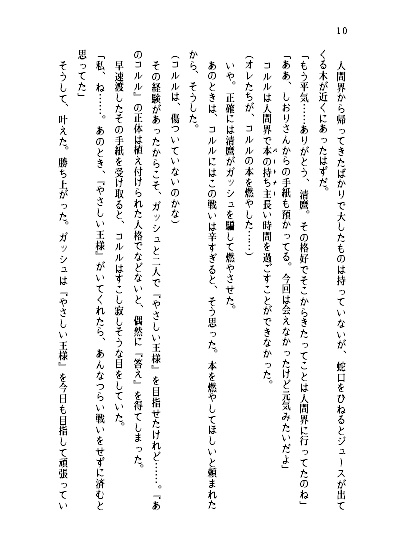 10
人間界から帰ってきたばかりで大したものは持っていないが、蛇口をひねるとジュースが出て
くる木が近くにあったはずだ。
「もう平気……ありがとう、清麿。その格好でそこからきたってことは人間界に行ってたのね」
「ああ、しおりさんからの手紙も預かってる。今回は会えなかったけど元気みたいだよ」
コルルは人間界で本の持ち主と長い時間を過ごすことができなかった。
(オレたちが、コルルの本を燃やした……)
いや。正確には清麿がガッシュを騙して燃やさせた。
あのときは、コルルにはこの戦いは辛すぎると、そう思った。本を燃やしてほしいと頼まれた
から、そうした。
(コルルは、傷ついていないのかな)
その経験があったからこそ、ガッシュと二人で『やさしい王様』を目指せたけれど……。『あ
のコルル』の正体は植え付けられた人格でなどないと、偶然に『答え』を得てしまった。
早速渡したその手紙を受け取ると、コルルはすこし寂しそうな目をしていた。
「私、ね……。あのとき、『やさしい王様』がいてくれたら、あんなつらい戦いをせずに済むと
思ってた」
そうして、叶えた。勝ち上がった。ガッシュは『やさしい王様』を今日も目指して頑張ってい